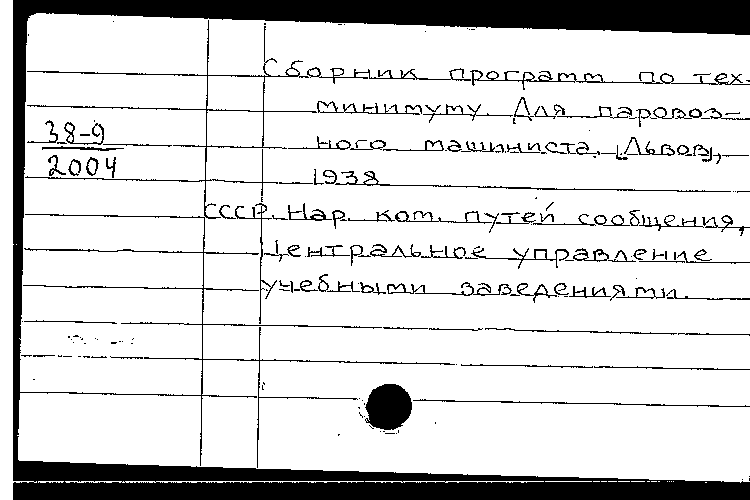 Сборник программ по тех-
минимуму. Для паровоз-
38-9
ного машиниста. [Львов],
2004
1938
СССР. Нар. ком. путей сообщения,
Центральное управление
учебными заведениями.